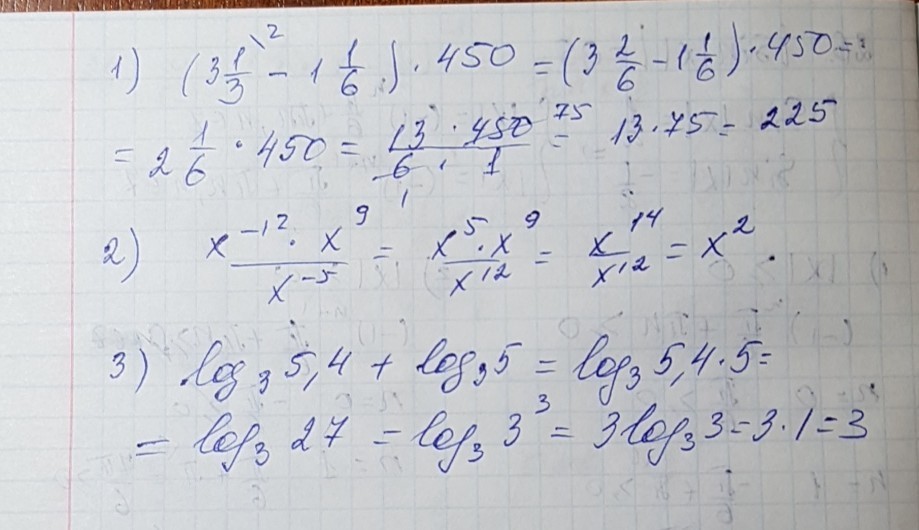 1) (3 1/3^\2 - 1 1/6) · 450 = (3 2/6 - 1 1/6) · 450 =
= 2 1/6 · 450 = (13 · 450 75)/(6 1 · 1) = 13 · 75 = 225
2) (x^-12 · x^9)/(x^-5) = (x^5 · x^9)/(x^12) = x^14/x^12 = x^2
3) log_3 5,4 + log_3 5 = log_3 5,4 · 5 =
= log_3 27 = log_3 3^3 = 3 log_3 3 = 3 · 1 = 3